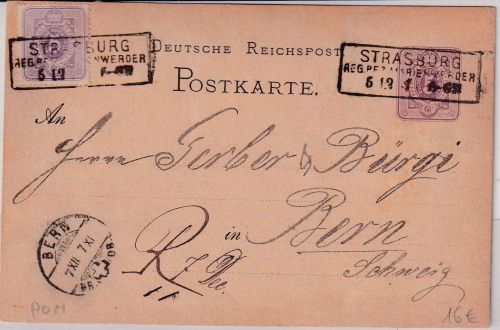 STRASBURG
REG.BEZ.MARIENWERDER
5 12
DEUTSCHE REICHSPOST
STRASBURG
REG.BEZ.MARIENWERDER
5 12
POSTKARTE.
An
Herren Gerber & Bürgi
in Bern
Schweiz
R 7 Dec.
BERN
7 XII 7 XI
POM
16€